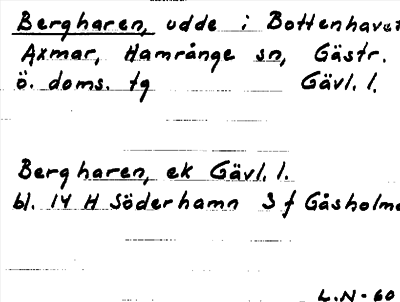 Bergharen, udde i Bottenhavet
Axmar, Hamrånge sn, Gästr.
ö. doms. tg Gävl. l.
Bergharen, ek Gävl. l.
bl. 14 H Söderhamn S f Gåsholma
L.N-60